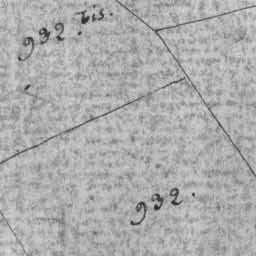 932.bis.
932.